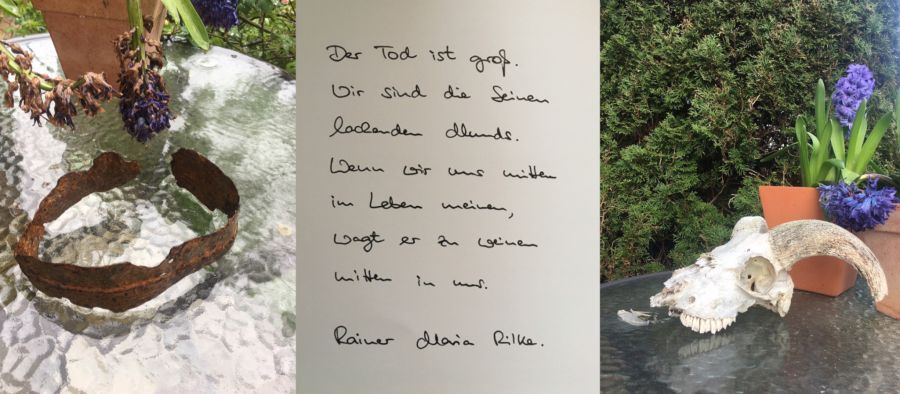 Der Tod ist groß.
Wir sind die Seinen
lachenden Munds.
Wenn wir uns mitten
im Leben meinen,
wagt er zu weinen
mitten in uns.
Rainer Maria Rilke.